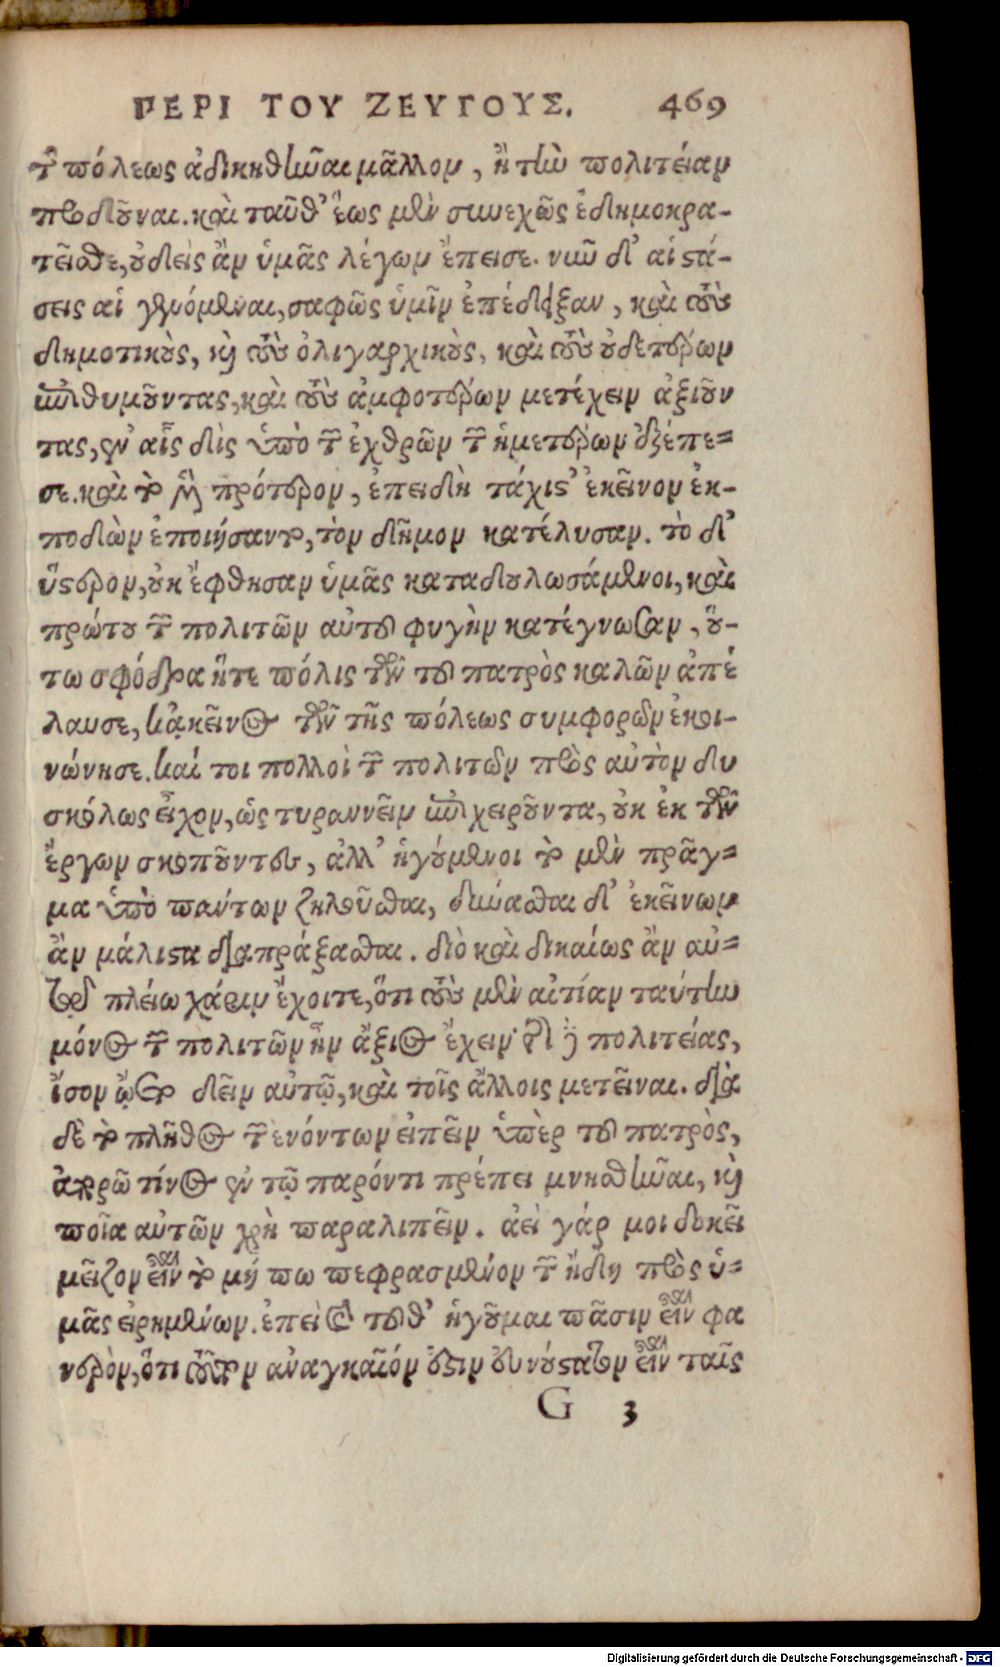 ΠΕΡΙ ΤΟΥ ΖΕΥΓΟΥΣ. 469
τῆς πόλεως ἀδικηθῆναι μᾶλλον, ἢ τὴν πολιτείαν
προδοῦναι. καὶ ταῦθ' ἕως μὲν συνεχῶς ἐδημοκρα-
τεῖσθε, οὐδεὶς ἂν ὑμᾶς λέγων ἔπεισε. νῦν δ' αἱ στά-
σεις αἱ γενόμεναι, σαφῶς ὑμῖν ἐπέδειξαν, καὶ τοὺς
δημοτικοὺς, καὶ τοὺς ὀλιγαρχικοὺς, καὶ τοὺς οὐδετέρων
ἐπιθυμοῦντας, καὶ τοὺς ἀμφοτέρων μετέχειν ἀξιοῦν
τας, ἐν αἷς δὶς ὑπὸ τῶν ἐχθρῶν τῶν ἡμετέρων ἐξέπε-
σε. καὶ τὸ μὲν πρότερον, ἐπειδὴ τάχιστ' ἐκεῖνον ἐκ-
ποδὼν ἐποιήσαντο, τὸν δῆμον κατέλυσαν. τὸ δ'
ὕστερον, οὐκ ἔφθησαν ὑμᾶς καταδουλωσάμενοι, καὶ
πρώτου τῶν πολιτῶν αὐτοῦ φυγὴν κατέγνωσαν, οὕ-
τω σφόδρα ἥτε πόλις τῶν τοῦ πατρὸς καλῶν ἀπέ
λαυσε, κἀκεῖνος τῶν τῆς πόλεως συμφορῶν ἐκοι-
νώνησε. καί τοι πολλοὶ τῶν πολιτῶν πρὸς αὐτὸν δυ
σκόλως εἶχον, ὡς τυραννεῖν ἐπιχειροῦντα, οὐκ ἐκ τῶν
ἔργων σκοποῦντες, ἀλλ' ἡγούμενοι τὸ μὲν πρᾶγ-
μα ὑπὸ πάντων ζηλοῦσθαι, δύνασθαι δ' ἐκεῖνων
ἂν μάλιστα διαπράξασθαι. διὸ καὶ δικαίως ἂν αὐ-
τῷ πλείω χάριν ἔχοιτε, ὅτι τοὺς μὲν αἰτίαν ταύτην
μόνος τῶν πολιτῶν ἦν ἄξιος ἔχειν· τῆς δὲ πολιτείας,
ἴσον ᾤετο δεῖν αὐτῷ, καὶ τοῖς ἄλλοις μετεῖναι. διὰ
δὲ τὸ πλῆθος τῶν ἐνόντων εἰπεῖν ὑπὲρ τοῦ πατρὸς,
ἀπορῶ τίνος ἐν τῷ παρόντι πρέπει μνησθῆναι, καὶ
ποῖα αὐτῶν χρὴ παραλιπεῖν. ἀεὶ γάρ μοι δοκεῖ
μεῖζον εἶναι τὸ μή πω πεφρασμένον τῶν ἤδη πρὸς ὑ-
μᾶς εἰρημένων. ἐπεὶ καὶ τοῦθ' ἡγοῦμαι πᾶσιν εἶναι φα
νερὸν, ὅτι τοῦτον ἀναγκαῖόν ἐστιν εὐνούστατον εἶναι ταῖς
G 3
Digitalisierung gefördert durch die Deutsche Forschungsgemeinschaft - DFG